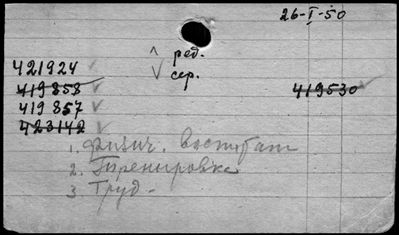 26-I-50
ред.
421924
сер.
419858
419530
419857
423142
1. Физич. воспитан
2. Тренировка
3. Труд-